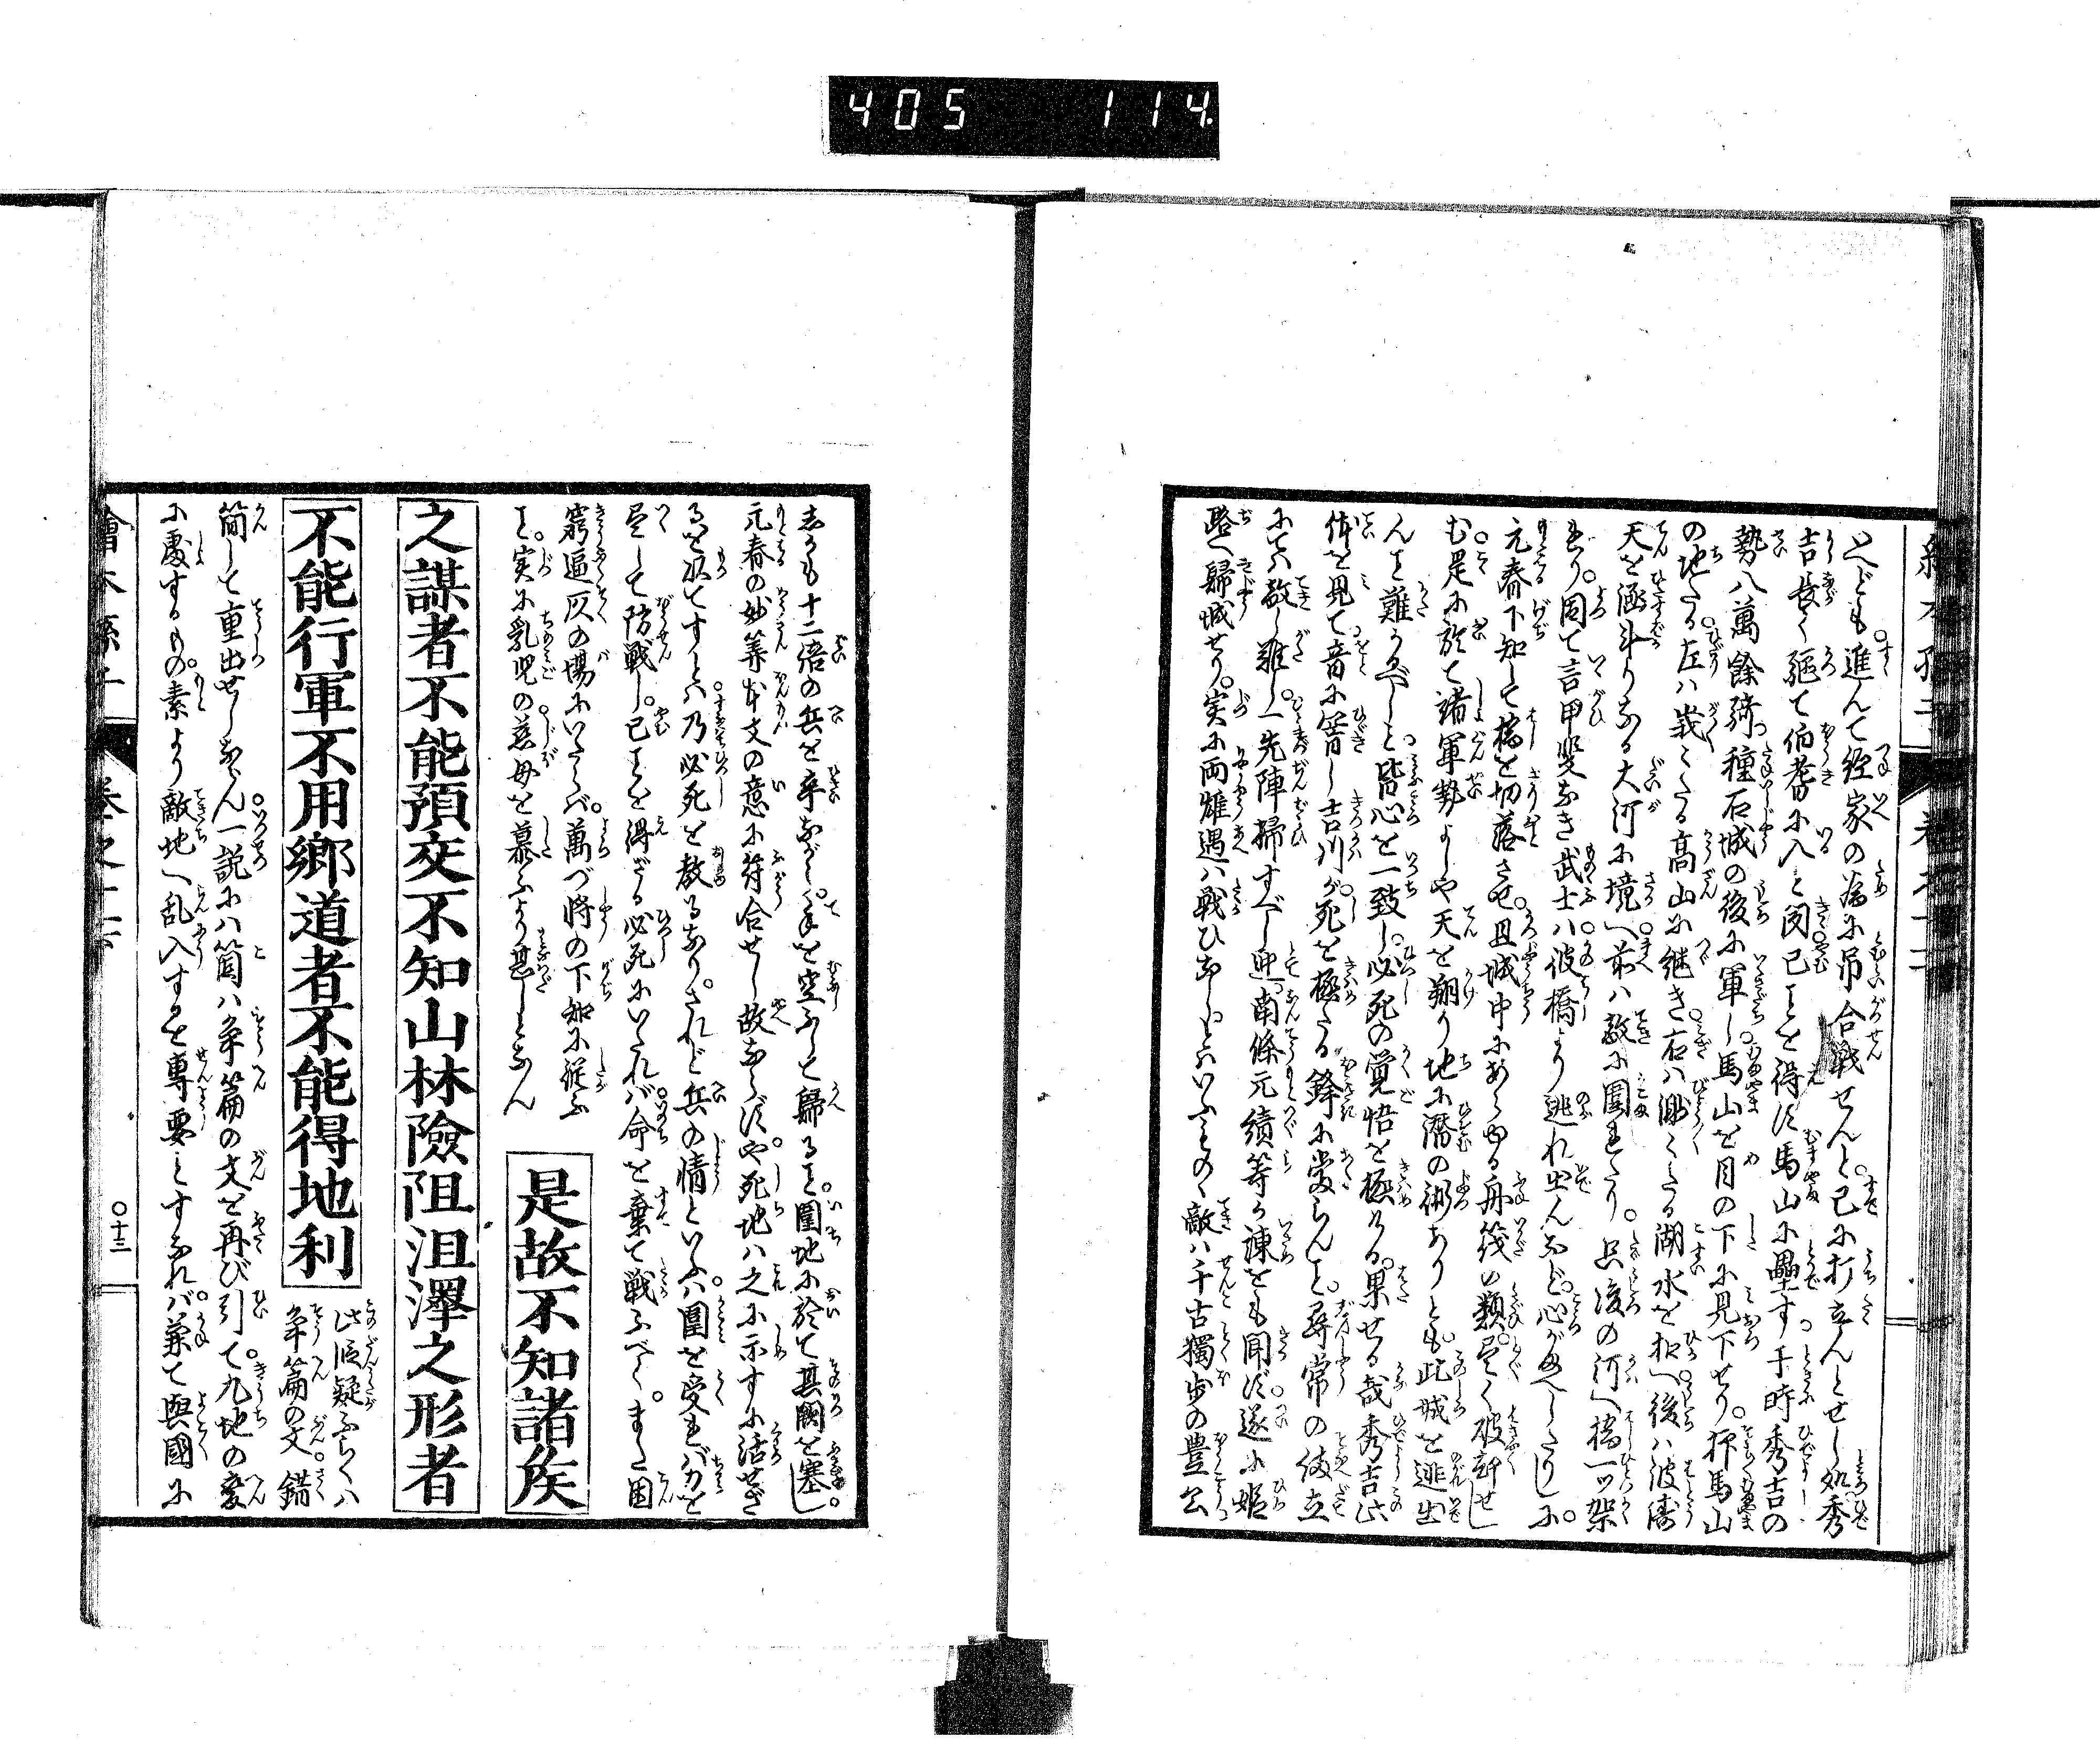 405 114.
へども進んで経家の為に吊合戦せんと已に打立んとせし処秀
吉長く駆て伯耆に入と聞已ことを得ず馬山に塁す于時秀吉の
勢八萬餘騎種石城の後に軍し馬山を目の下に見下せり抑馬山
の地たる左は峩々たる高山に継き右は渺々たる湖水を抱へ後は波濤
天を涵斗りなる大河に境へ前は敵に圍まれたり只後の河へ橋一ッ架
まり固て言甲斐なき武士は彼橋より逃れ出んなど心がまへしたりしに
元春下知して橋を切落させ且城中にあらゆる舟筏の類尽く破却せし
む是に於て諸軍勢よしや天を翔り地に潜の術ありとも此城を逃出
んこと難かるべしと皆心を一致し必死の覚悟を極ける果せる哉秀吉此
体を見て音に響し吉川が死を極たる鋒に當らんこと尋常の倭立
にては敵し難し一先陣掃すべし迚南條元續等が諫をも聞ず遂に姫
路へ歸城せり実に両雄遇ば戦ひなしとはいふものゝ敵は千古獨歩の豊公
しかも十二倍の兵を卒ながら手を空ふして歸ること圍地に於て其闕を塞し
元春の妙筭本文の意に符合せし故ならずや死地は之に示すに活せざ
るを以てすとは乃必死を教るなりされど兵の情といふは圍を受ればカを
尽して防戦し已ことを得ざる必死にいたれば命を棄て戦ふべくまた困
窮逼仄の場にいたらば萬づ将の下知に従ふ
こと実に乳児の慈母を慕ふより甚しとなん
是故不知諸侯
之謀者不能預交不知山林險阻沮澤之形者
不能行軍不用郷道者不能得地利
此段疑ふらくは
軍篇の文錯
簡して重出せしならん一説には箇は軍篇の文を再び引て九地の変
に處するもの素より敵地へ乱入するを専要とすなれば兼て與國に
繪本孫子
巻之十二
〇十三